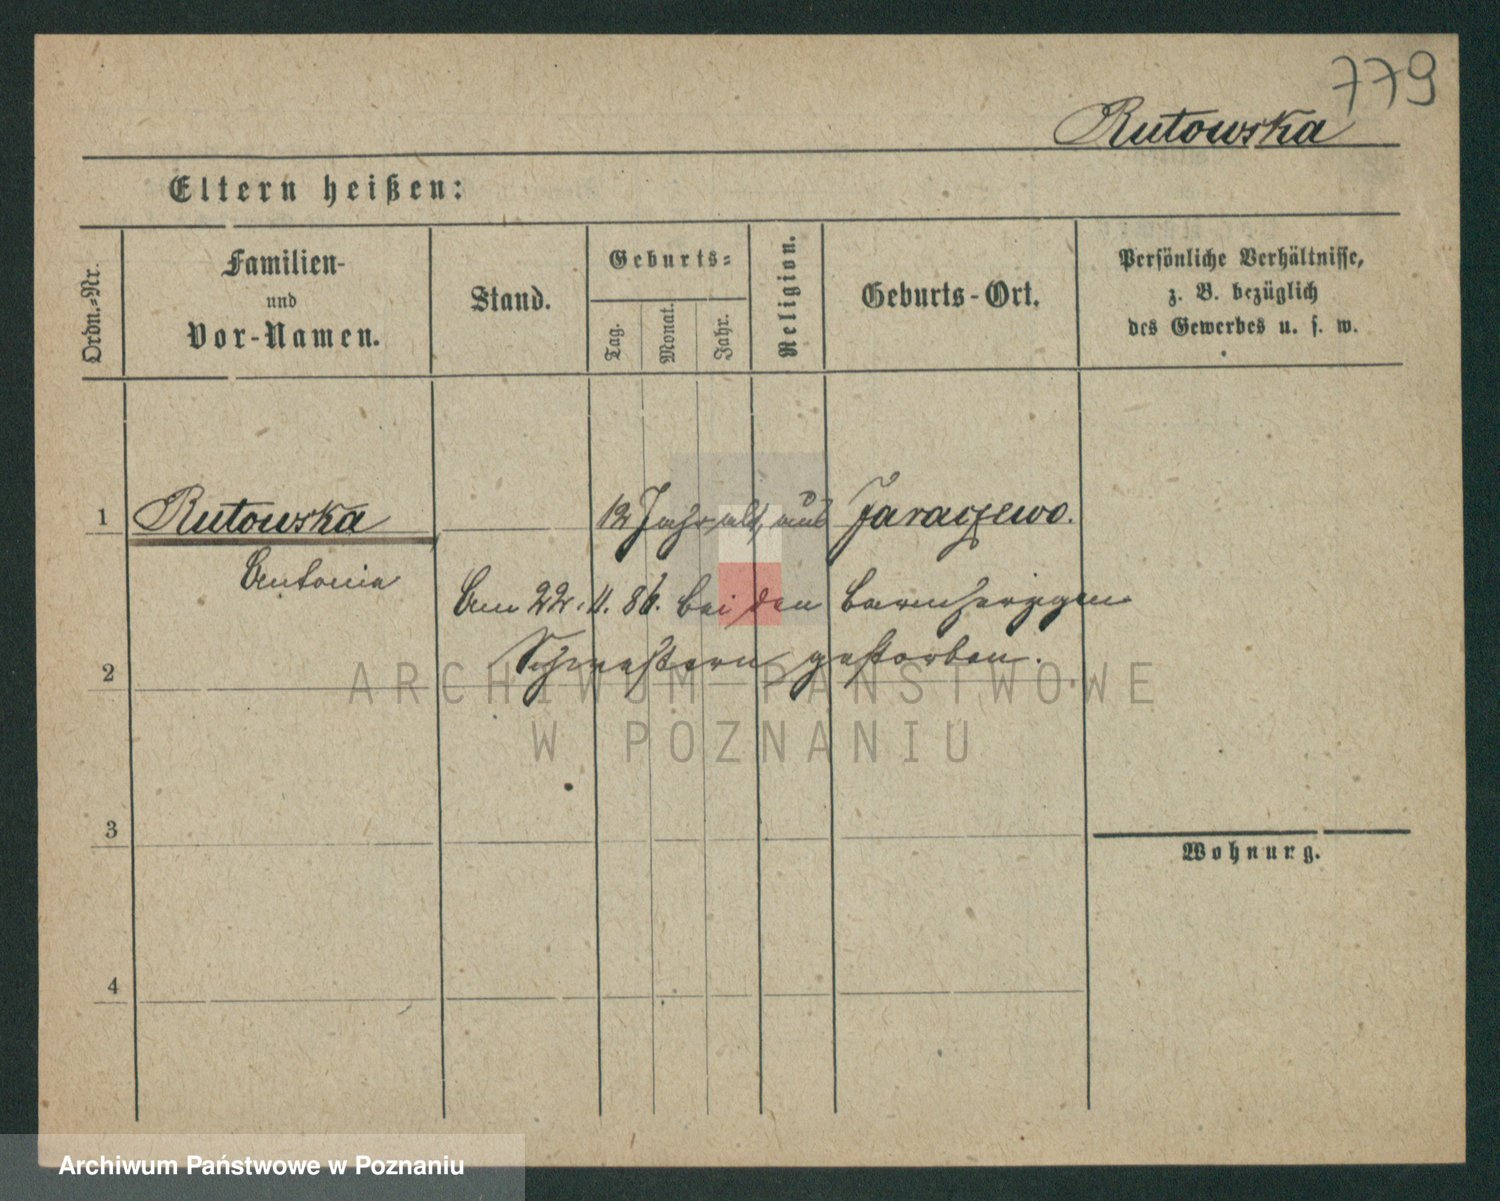 779
Rutowska
Eltern heißen:
Ordn.-Nr.
Familien-
und
Vor-Namen.
Stand.
Geburts-
Tag.
Monat.
Jahr.
Religion.
Geburts-Ort.
Persönliche Verhältnisse,
z. B. bezüglich
des Gewerbes u. s. w.
1 Rutowska 12 Jahr alt, aus Jaraczewo.
Antonia
Am 22. 11. 86. bei den barmherzigen
Schwestern gestorben.
2
ARCHIWUM PAŃSTWOWE
W POZNANIU
3
Wohnung.
4
Archiwum Państwowe w Poznaniu